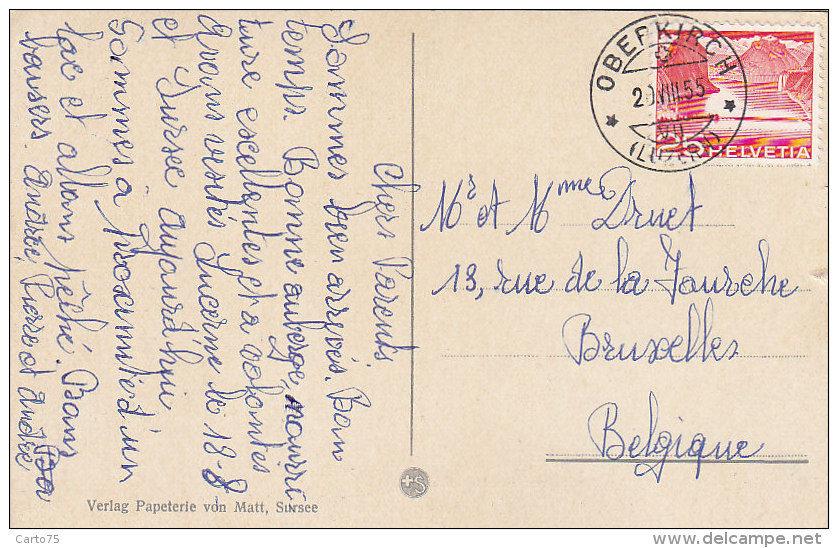 Chers Parents
Sommes bien arrivés. Bon
temps. Bonne auberge, nourri
ture excellentes et a volontés
Avons visités Lucerne le 18-8
et Sursee aujourd'hui
Sommes à proximité d'un
lac et allons pêché. Bons
baisers. Andrée, Pierre et
Mr et Mmes Druet
13, rue de la Fourche
Bruxelles
Belgique
OBERKIRCH
20.VIII.55
(LUZERN)
25 HELVETIA
+S
Verlag Papeterie von Matt, Sursee
Carto75
www.delcampe.net